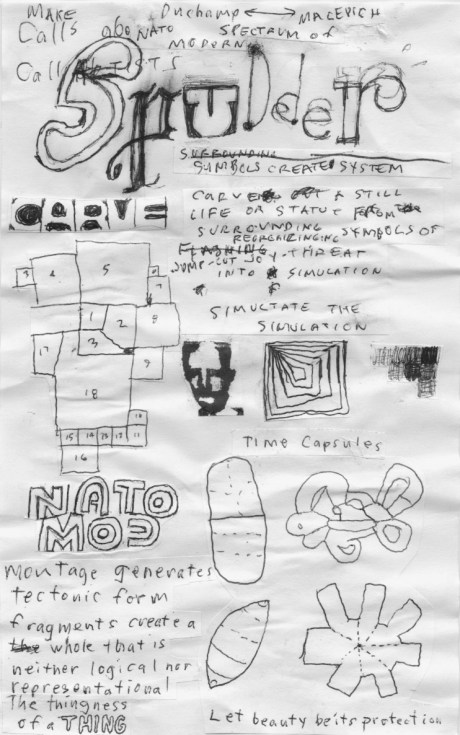 MAKE
Calls abo
Call ARTISTS
Duchamp ↔ MALEVICH
NATO SPECTRUM of
MODERN
Spudder
SURROUNDING
SYMBOLS CREATE SYSTEM
CARVE
CARVE A STILL
LIFE OR STATUE FROM
SURROUNDING SYMBOLS OF
REORGANIZING
FLASHING THREAT
JUMP-CUT
INTO SIMULATION
SIMULTATE THE
SIMULATION
7 4 5 6
7
1 2 8
3
17 9
18
10
15 14 13 12 11
16
Time Capsules
NATO
MOD
Montage generates
tectonic form
fragments create a
the whole that is
neither logical nor
representational
The thingness
of a THING
Let beauty be its protection